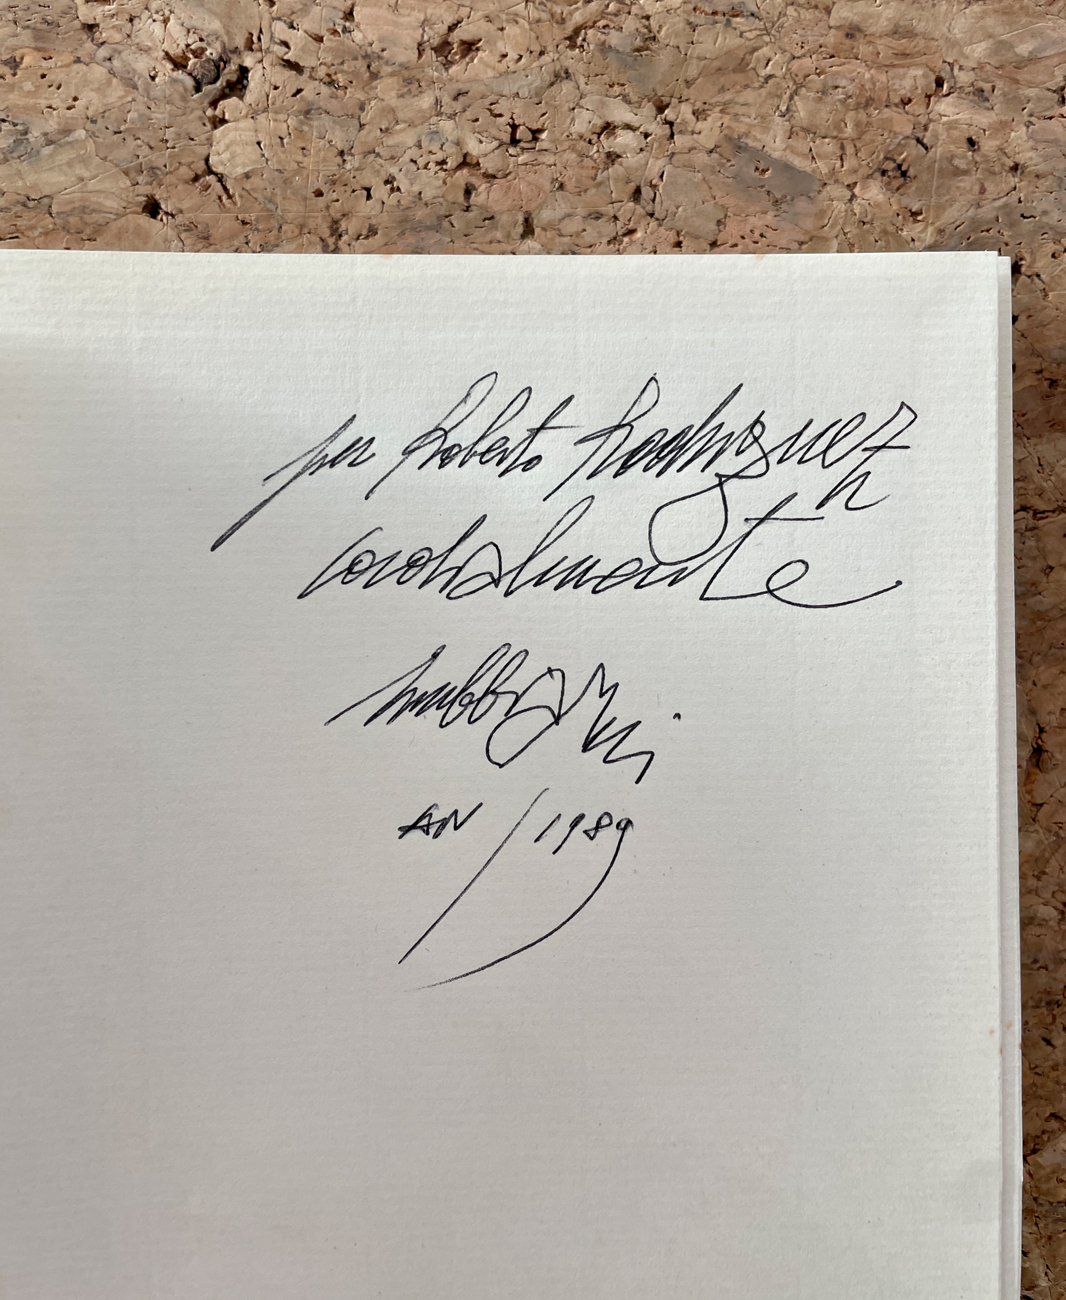 per Roberto Rodriguez
cordialmente
AN / 1989